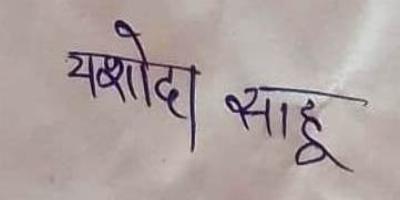 यशोदा साहू